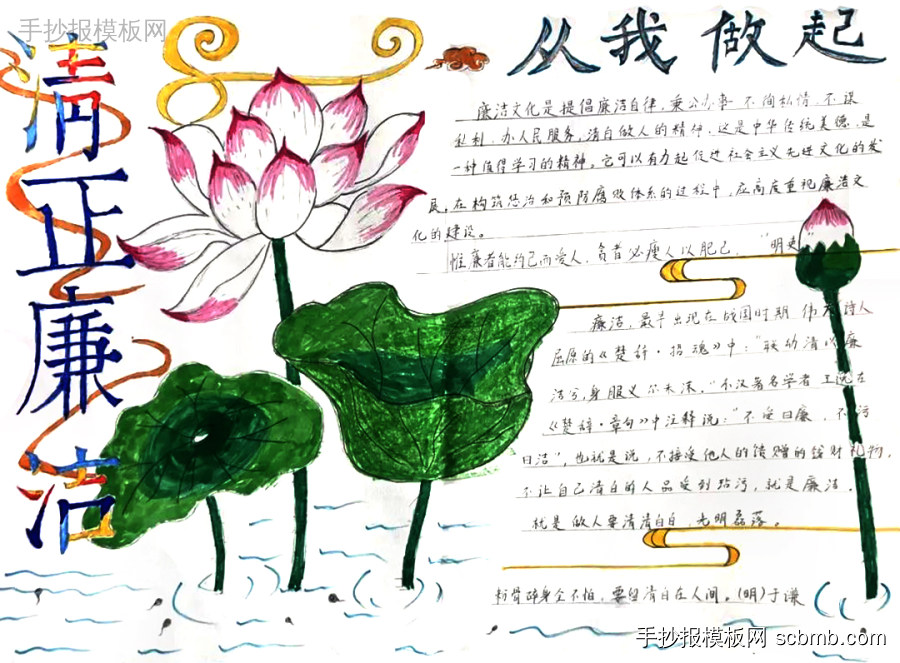 手抄报模板网
清正廉洁
从我做起
廉洁文化是提倡廉洁自律,秉公办事 不徇私情,不谋
私利,办人民服务,清白做人的精神,这是中华传统美德,是
一种值得学习的精神。它可以有力起促进社会主义先进文化的发
展,在构筑惩治和预防腐败体系的过程中,应高度重视廉洁文
化的建设。
惟廉者能约己而爱人,贪者必瘦人以肥己。 "明
廉洁,最早出现在战国时期 伟大诗人
屈原的《楚辞·招魂》中:"朕幼清以廉
洁兮,身服义尔未沫。"东汉著名学者 王逸在
《楚辞·章句》中注释说:"不受曰廉,不污
曰洁",也就是说,不接受他人的馈赠的钱财礼物,
不让自己清白的人品受到玷污,就是廉洁。
就是做人要清清白白,光明磊落。
粉骨碎身全不怕,要留清白在人间。(明)于谦
手抄报模板网 scbmb.com